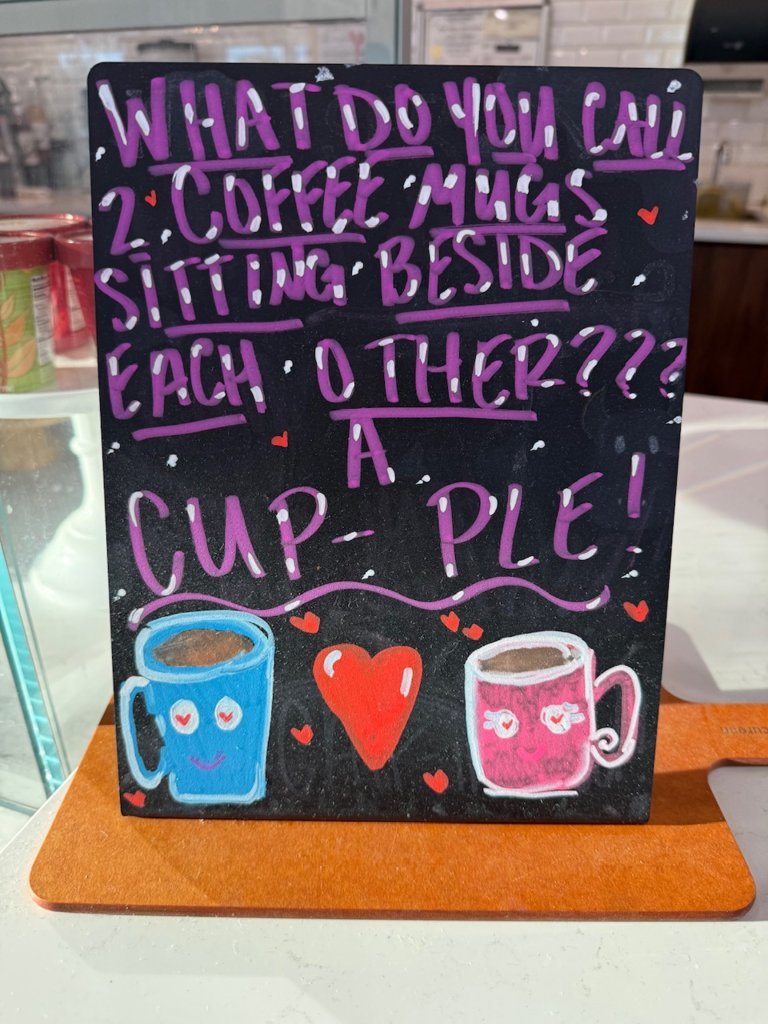 WHAT DO YOU CALL
2 COFFEE MUGS
SITTING BESIDE
EACH OTHER???
A
CUP- PLE!